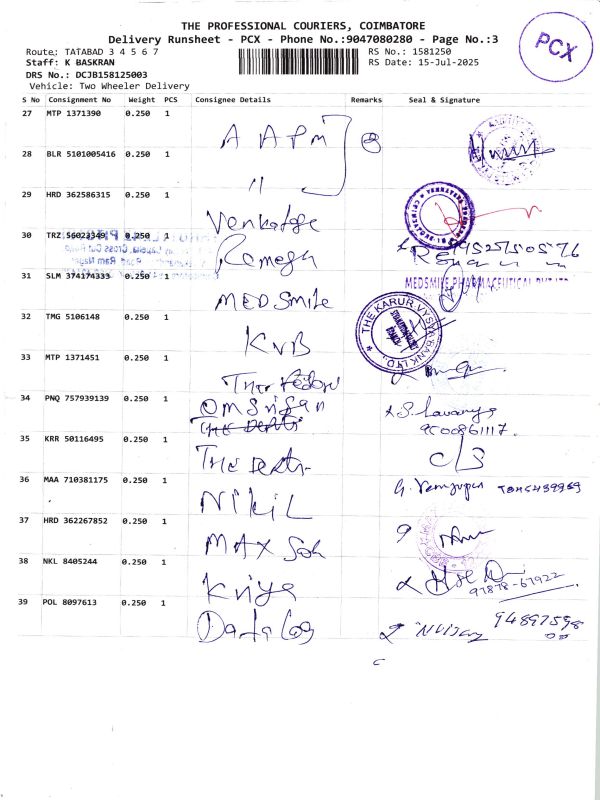 THE PROFESSIONAL COURIERS, COIMBATORE
Delivery Runsheet - PCX - Phone No.:9047080280 - Page No.:3
PCX
Route: TATABAD 3 4 5 6 7 RS No.: 1581250
Staff: K BASKRAN RS Date: 15-Jul-2025
DRS No.: DCJB158125003
Vehicle: Two Wheeler Delivery
S No Consignment No Weight PCS Consignee Details Remarks Seal & Signature
27 MTP 1371390 0.250 1 AAPM
28 BLR 5101005416 0.250 1 "
29 HRD 362586315 0.250 1 Venkatge
30 TRZ 56023349 0.250 1 Ramesh
31 SLM 374174333 0.250 1 MEDSmile MEDSMILE PHARMACEUTICAL PVT LTD
32 TMG 5106148 0.250 1 KVB THE KARUR VYSYA BANK LTD.
33 MTP 1371451 0.250 1 The
34 PNQ 757939139 0.250 1 OM S. Lavanya
9500861117.
35 KRR 50116495 0.250 1 The C/S
36 MAA 710381175 0.250 1 Nikil G.
37 HRD 362267852 0.250 1 MAX
38 NKL 8405244 0.250 1 Kriya 97878-67922
39 POL 8097613 0.250 1 Data Log 94897598
00